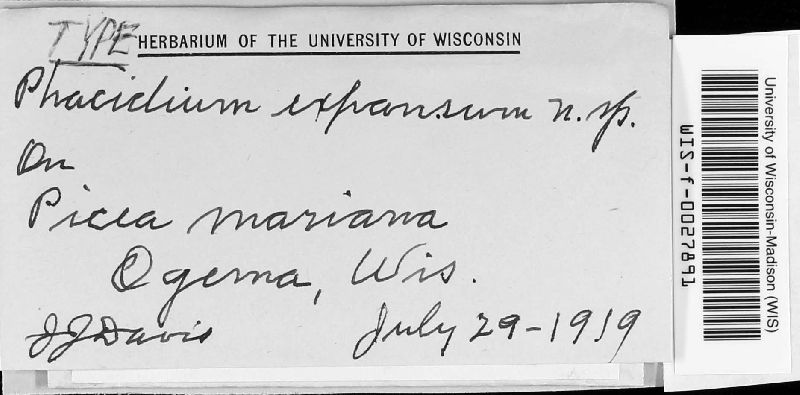 TYPE HERBARIUM OF THE UNIVERSITY OF WISCONSIN
Phacidium expansum n. sp.
On
Picea mariana
Ogema, Wis.
J J Davis July 29-1919
University of Wisconsin-Madison (WIS)
WIS-f-0027891